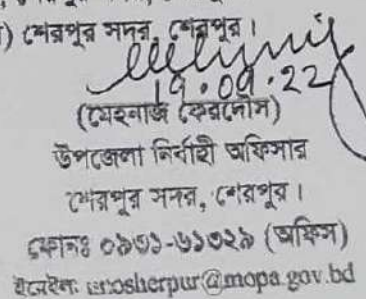 শেরপুর সদর, শেরপুর।
19.09.22
(মেহনাজ ফেরদৌস)
উপজেলা নির্বাহী অফিসার
শেরপুর সদর, শেরপুর।
ফোনঃ ০৯৩১-৬১৩২৯ (অফিস)
ইমেইল: unosherpur@mopa.gov.bd